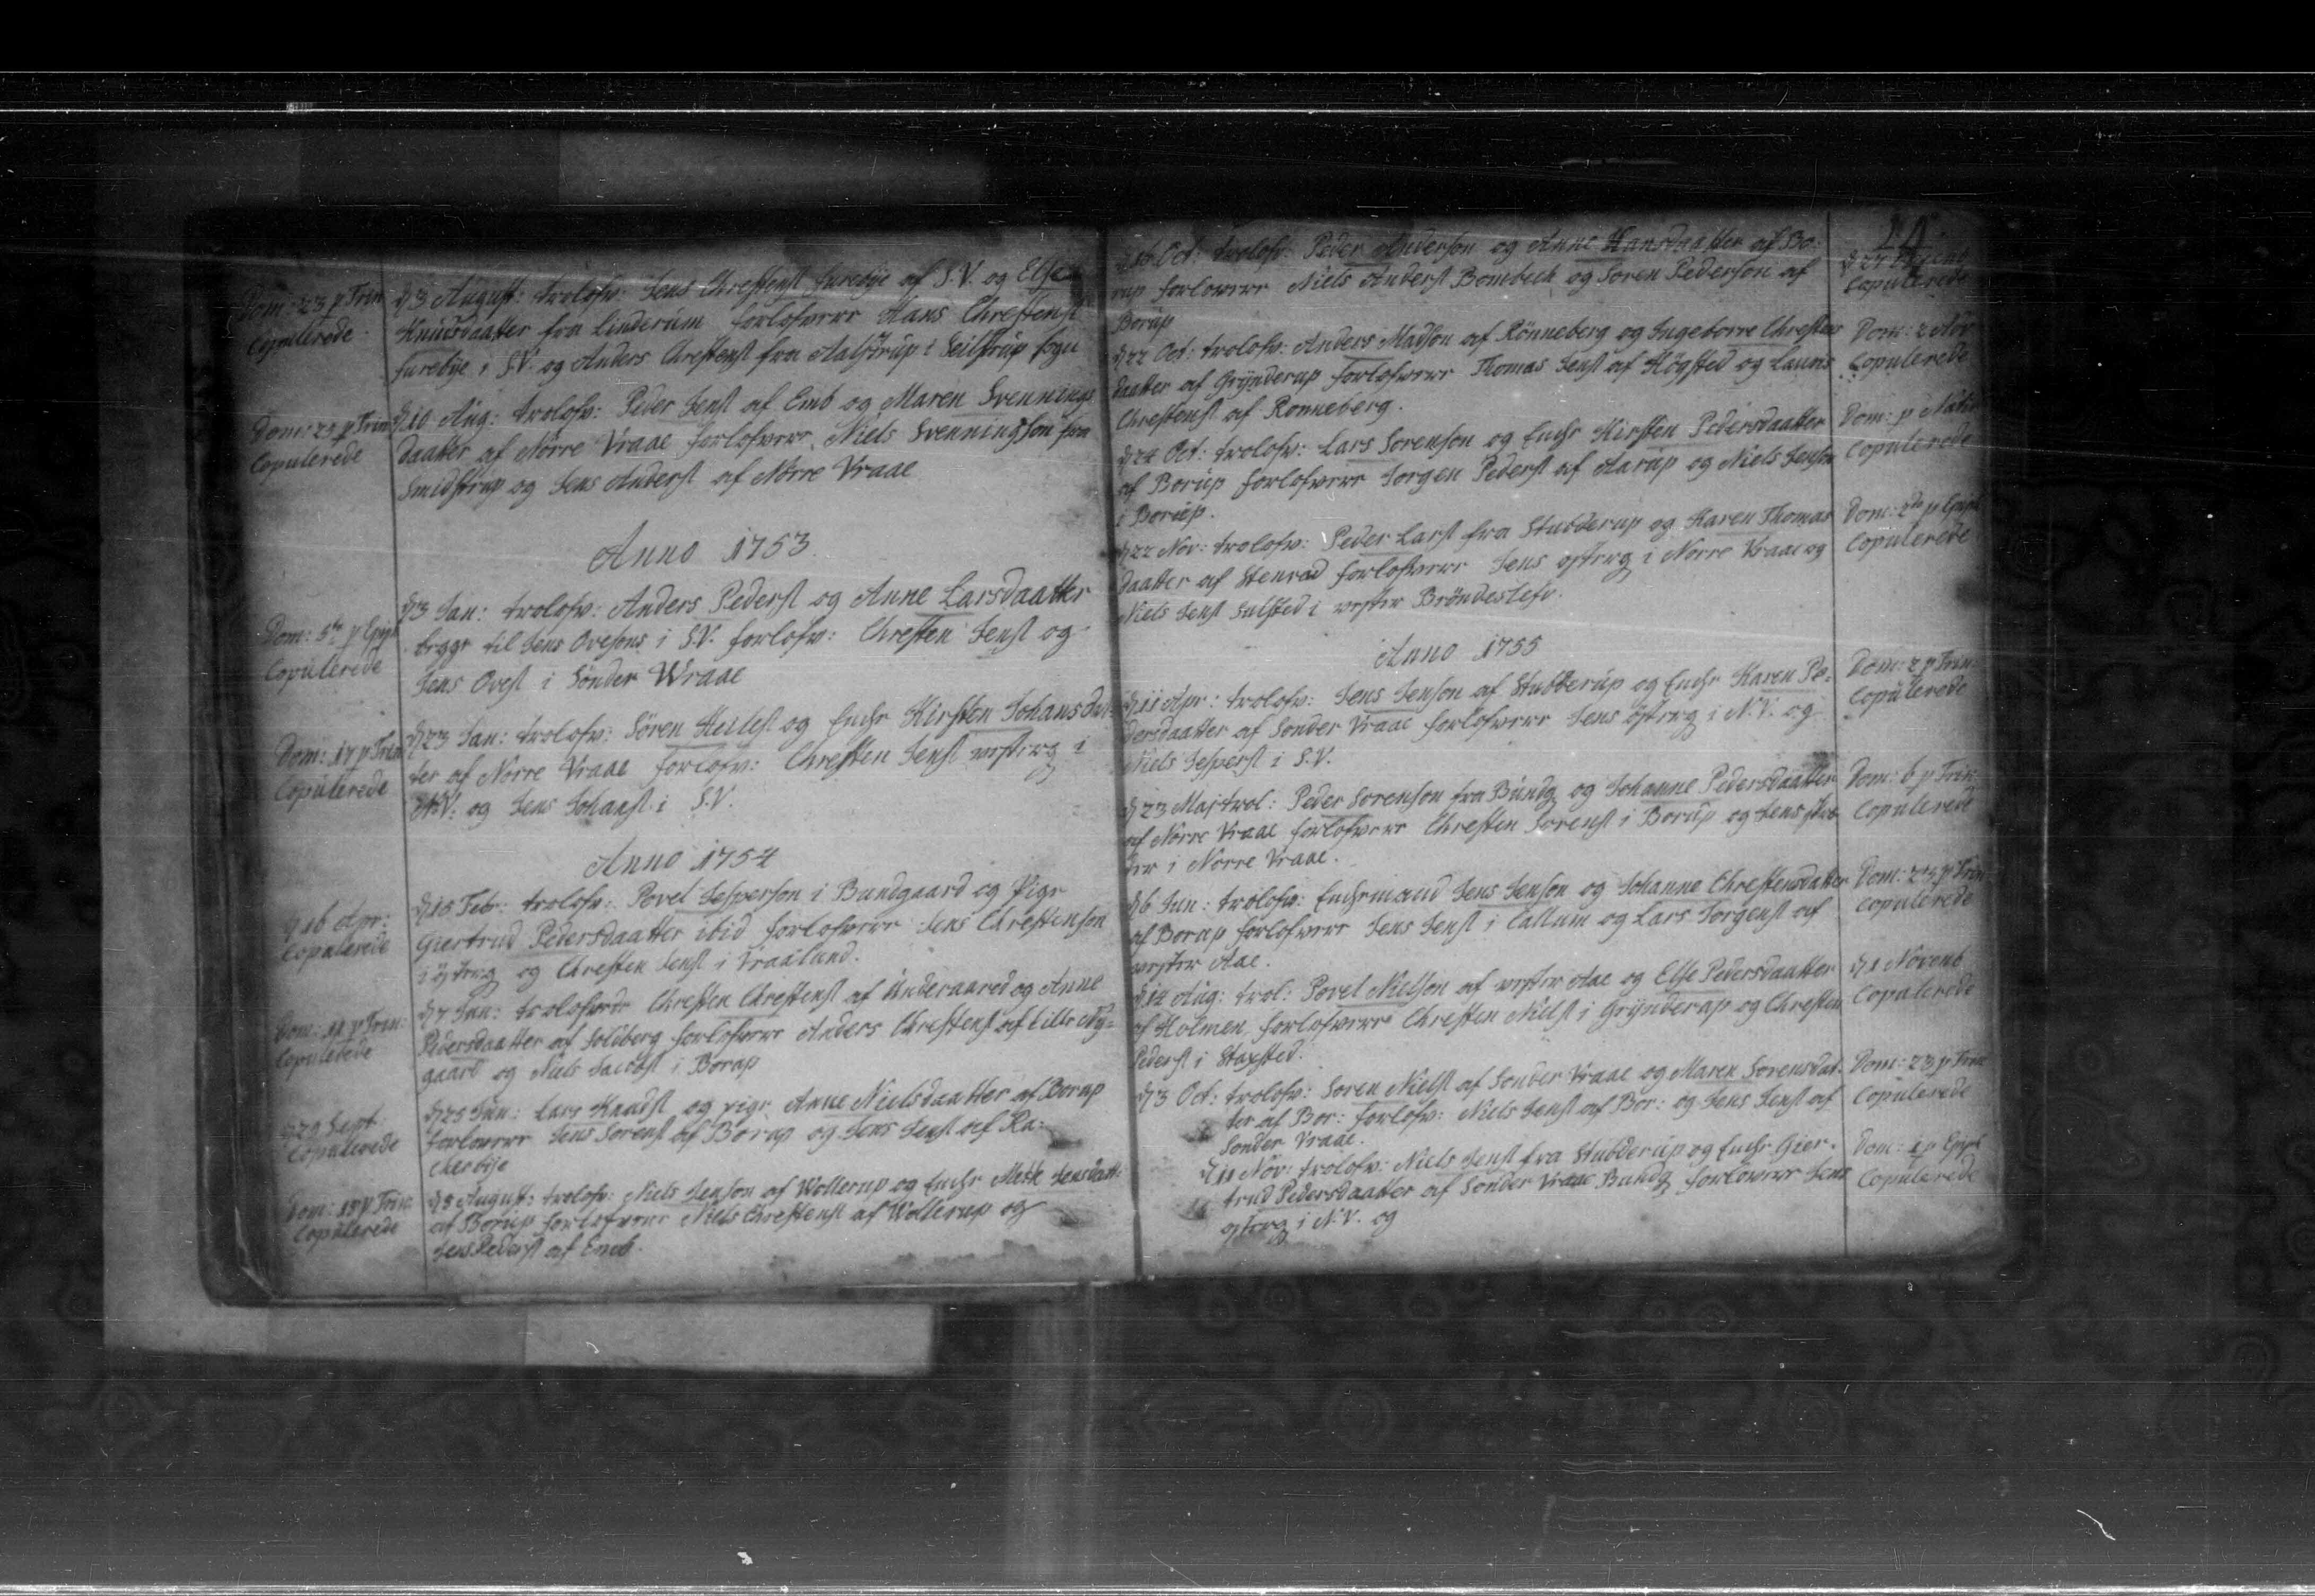 Dom: 23 p Trin
Copulerede
d 3 August: trolofv: Jens Chrestenst furebÿe af S.V. og Else
Knudsdaatter fra Linderum forlofverer Hans Chrestenst
furebÿe i S.V. og Anders Chrestenst fra Aalstrup i Seilstrup sogn
Dom: 24 p Trin
Copulerede
d 10 Aug: trolofv: Peder Jenst af Emb og Maren Svennings
daatter af Nörre Vraae forlofverer Niels Svenningson fra
Smidstrup og Jens Anderst af Nörre Vraae
Anno 1753
Dom: 5te p Epiph
Copulerede
d 3 Jan: trolofv: Anders Pederst og Anne Larsdaatter
begge til Jens Ovesens i S.V. forlofv: Chresten Jenst og
Jens Ovest i Sönder Wraae
Dom: 17 p Trin
Copulerede
d 23 Jan: trolofv: Sören Heilest og Enche Kirsten Johansdat-
ter af Nörre Vraae forlofv: Chresten Jenst vesterg i
N.V. og Jens Johanst i S.V.
Anno 1754
d 16 Apr:
Copulerede
d 15 Febr: trolofv: Povel Jesperson i Bundgaard og Pige
Giertrud Pedersdaatter ibid forlofverer Jens Chrestenson
i österg og Chresten Jenst i Vraalund.
Dom: 11 p Trin:
Copulerede
d 7 Jan: trolofvede Chresten Chrestenst af Underaared og Anne
Pedersdaatter af Soldberg forlofverer Anders Chrestenst af Lille Nÿ-
gaard og Niels Jacobst i Borup
d 29 Sept
Copulerede
d 25 Jun: Lars Knudst og pige Anne Nielsdaatter af Borup
forlovere Jens Sorenst af Borup og Jens Jenst af Ra-
kierbÿe
Dom: 15 p Trin:
Copulerede
d 8 August: trolofv: Niels Jenson af Wollerup og Enche Mette Jensdaatt:
af Borup forlofverer Niels Chrestenst af Wollerup og
Jens Pederst af Emb.
14
d 16 Oct: trolofv: Peder Anderson og Anne Hansdaatter af Bo-
rup forlovere Niels Anderst Bombech og Soren Pederson af
Borup
Copulerede
d 22 Oct: trolofv: Anders Madson af Rönneberg og Ingeborre Chrestens
daatter af Grÿnderup forlofverer Thomas Jenst af Högsted og Laurs
Chrestenst af Ronneberg.
Dom: 2 Adv
Copulerede
d 24 Oct: trolofv: Lars Sorenson og Enche Kirsten Pedersdaatter
af Borup forlofverer Jorgen Pederst af Aarup og Niels Jenson
i Borup.
Dom: p Nativ
Copulerede
d 22 Nov: trolofv: Peder Larst fra Stubderup og Karen Thomas
daatter af Stenrad forlofverer Jens osterg i Nörre Vraae og
Niels Jenst Sulsted i vester Bröndeslefv.
Dom: 2de p Epiph
Copulerede
Anno 1755
d 11 Apr: trolofv: Jens Jenson af Stubberup og Enche Karen Pe-
dersdaatter af Sonder Vraae forlofverer Jens österg i N.V. og
Niels Jesperst i S.V.
Dom: 2 p Trin:
Copulerede
d 23 Maj trol: Peder Sorenson fra Bundg og Johanne Pedersdaatter
af Nörre Vraae forlofverer Chresten Sorenst i Borup og Jens
i Nörre Vraae.
Dom: 6 p Trin:
Copulerede
d 6 Jun: trolofv: Enchemand Jens Jenson og Johanne Chrestensdatter
af Borup forlofverer Jens Jenst i Callum og Lars Jorgenst af
vester Aae.
Dom: 23 p Trin
Copulerede
d 14 Aug: trol: Povel Nielson af vester Aae og Else Pedersdaatter
af Holmen forlofverer Chresten Nielst i Grÿnderup og Chresten
Pederst i Staxsted.
d 1 Novemb
Copulerede
d 3 Oct: trolofv: Soren Nielst af Sonder Vraae og Maren Sorensdat-
ter af Bor: forlofv: Niels Jenst af Bor: og Jens Jenst af
Sonder Vraae.
Dom: 23 p Trin
Copulerede
d 11 Nov: trolofv: Niels Jenst fra Stubderup og Enche Gier-
trud Pedersdaatter af Sonder Vraae Bundg forlovere Jens
osterg i N.V. og
Dom: 1 p Epiph
Copulerede